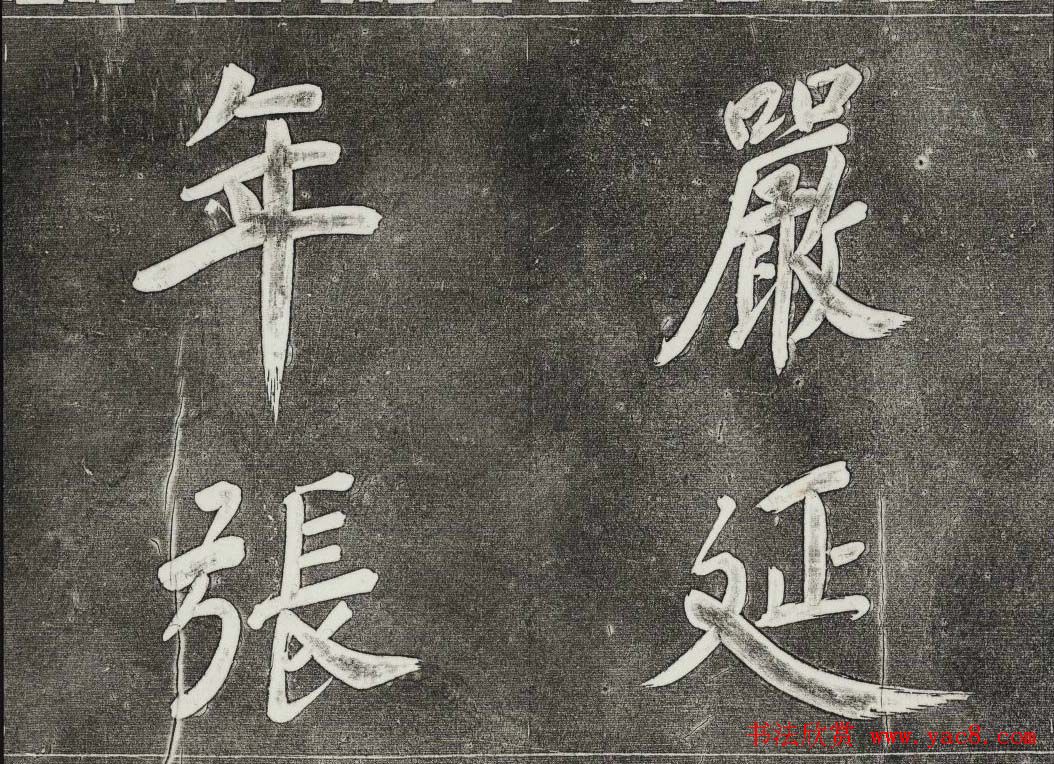 嚴延
年張
书法欣赏 www.yac8.com